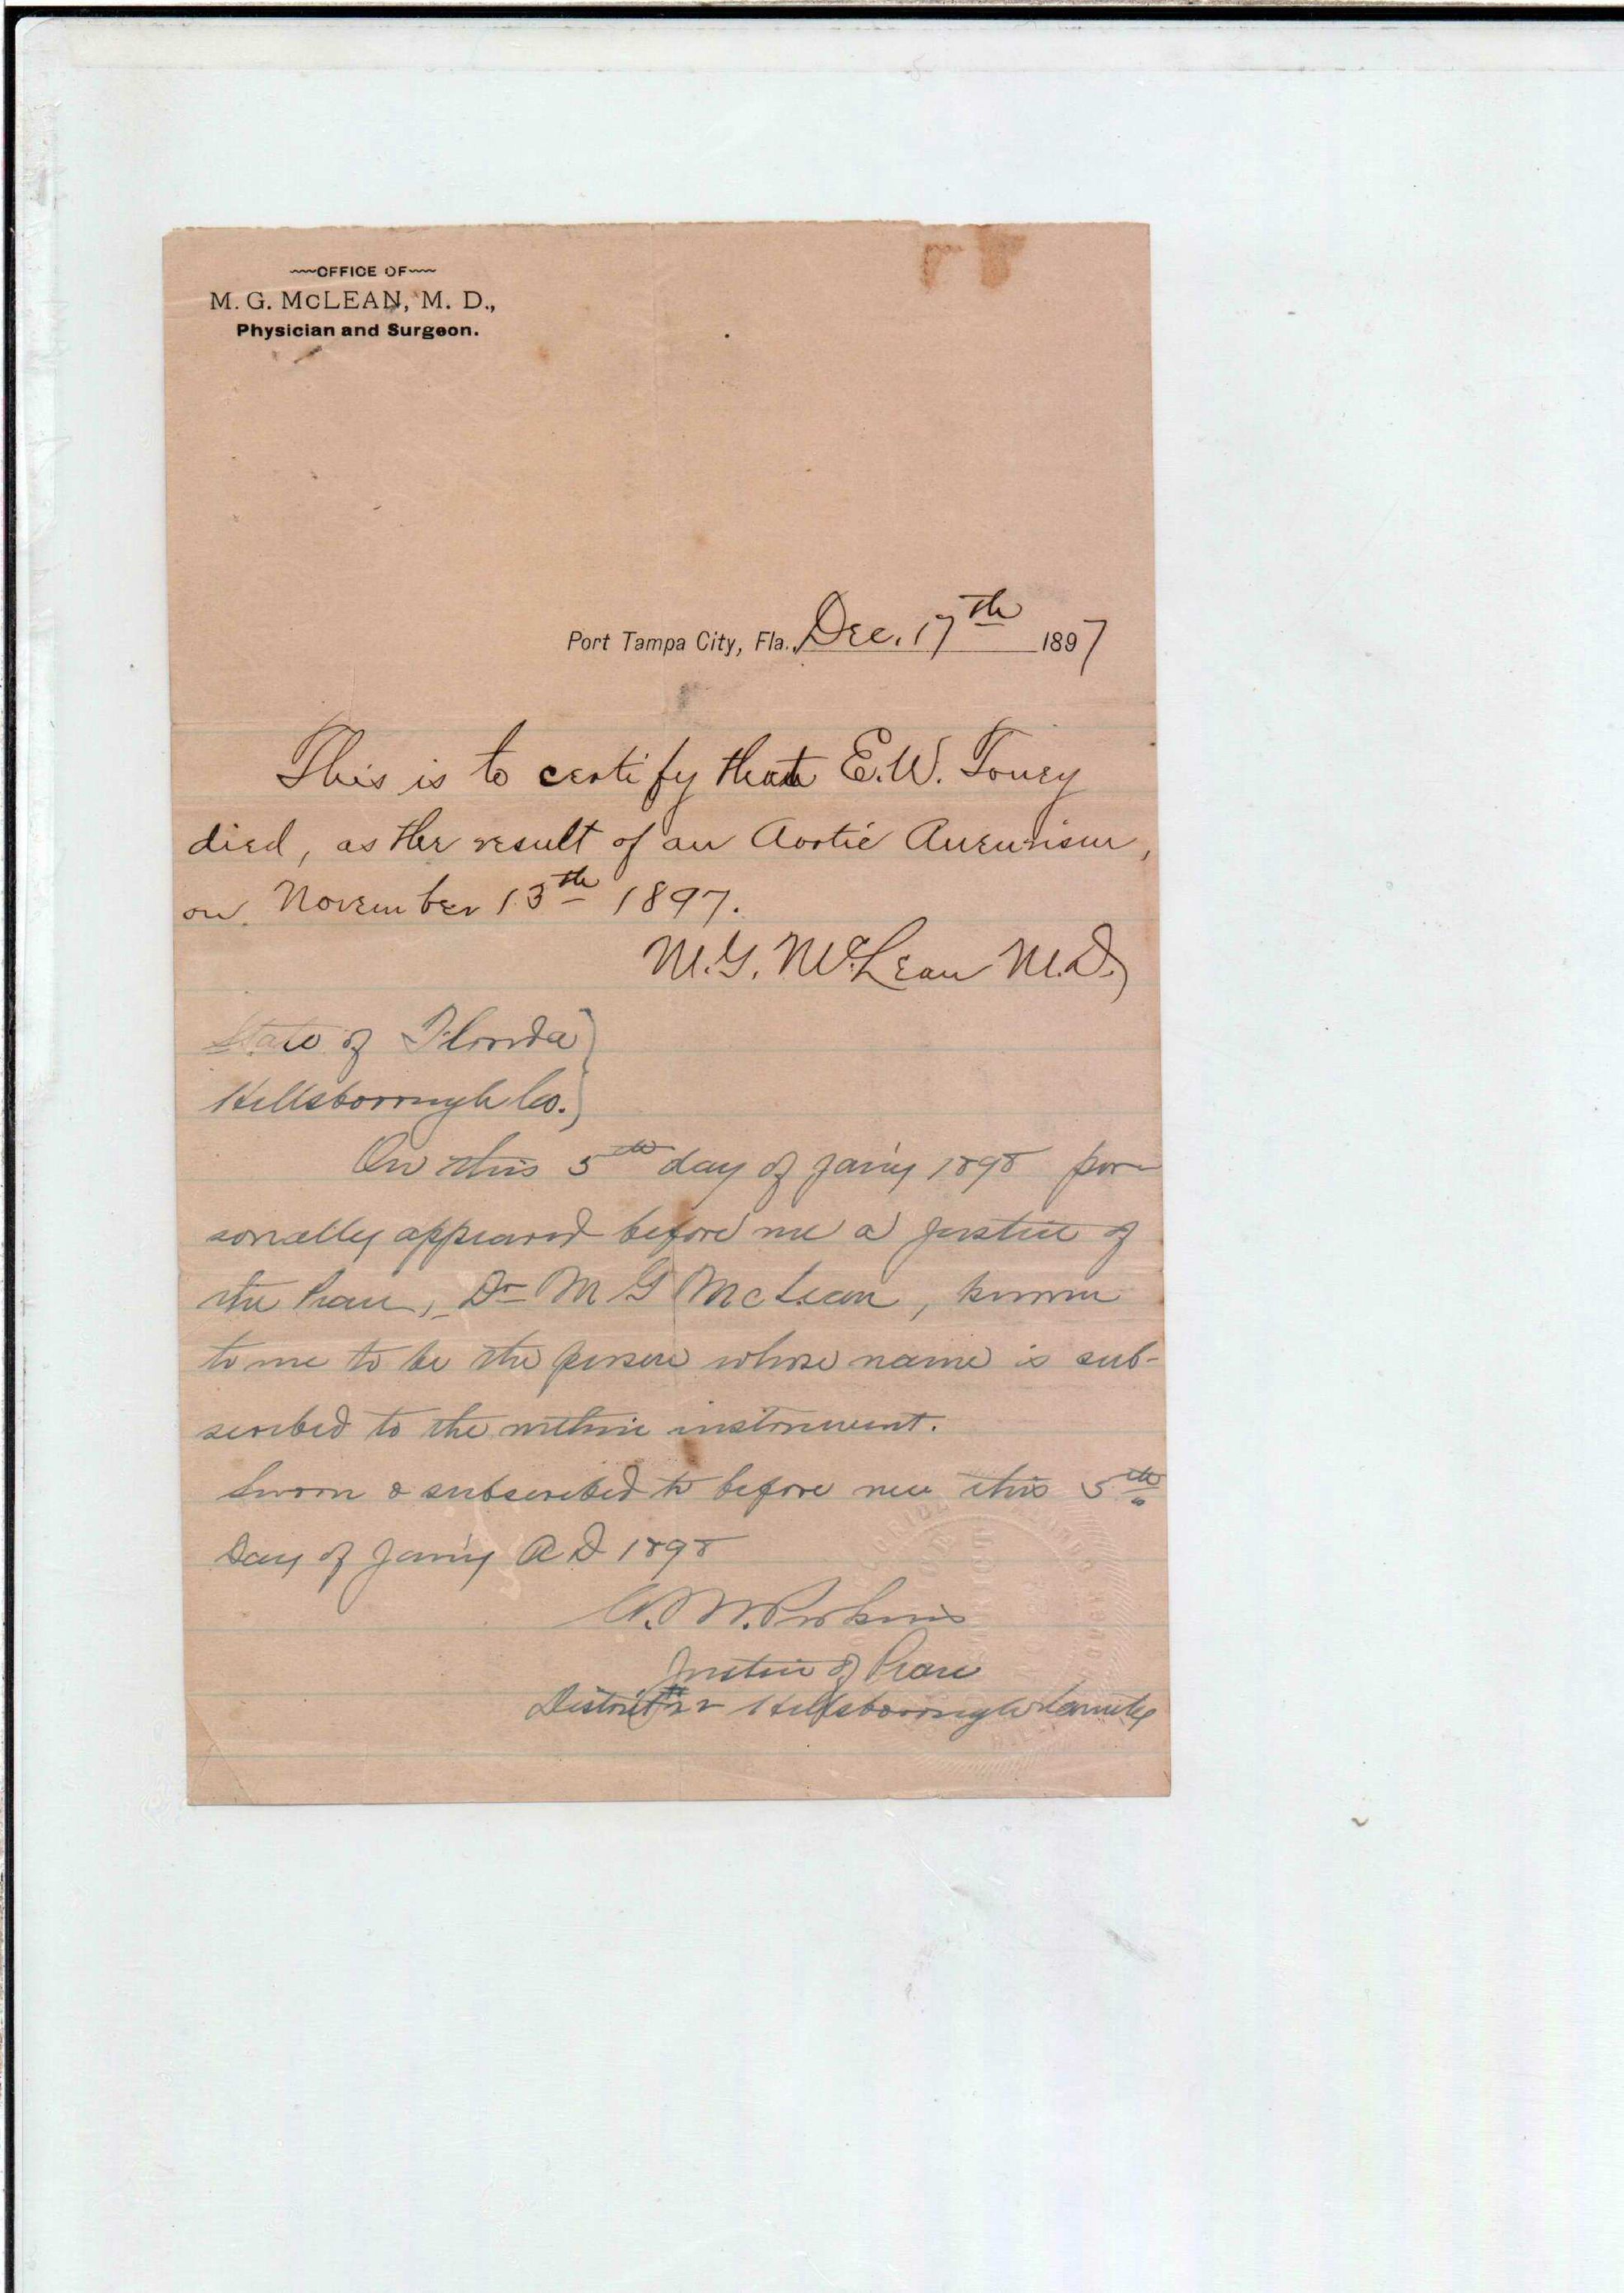 OFFICE OF
M. G. McLEAN, M. D.,
Physician and Surgeon.
Port Tampa City, Fla., Dec. 17th 1897
This is to certify that E.W. Toney
died, as the result of an Aortic Aneurism,
on November 13th 1897.
M.G. McLean M.D.
State of Florida
Hillsborough Co.
On this 5th day of Jan'y 1898 per
sonally appeared before me a Justice of
the Peace, Dr M G McLean, known
to me to be the person whose name is sub-
scribed to the within instrument.
Sworn & subscribed to before me this 5th
Day of Jan'y A D 1898
Perkins
Justice of Peace
District # 22 Hillsborough County